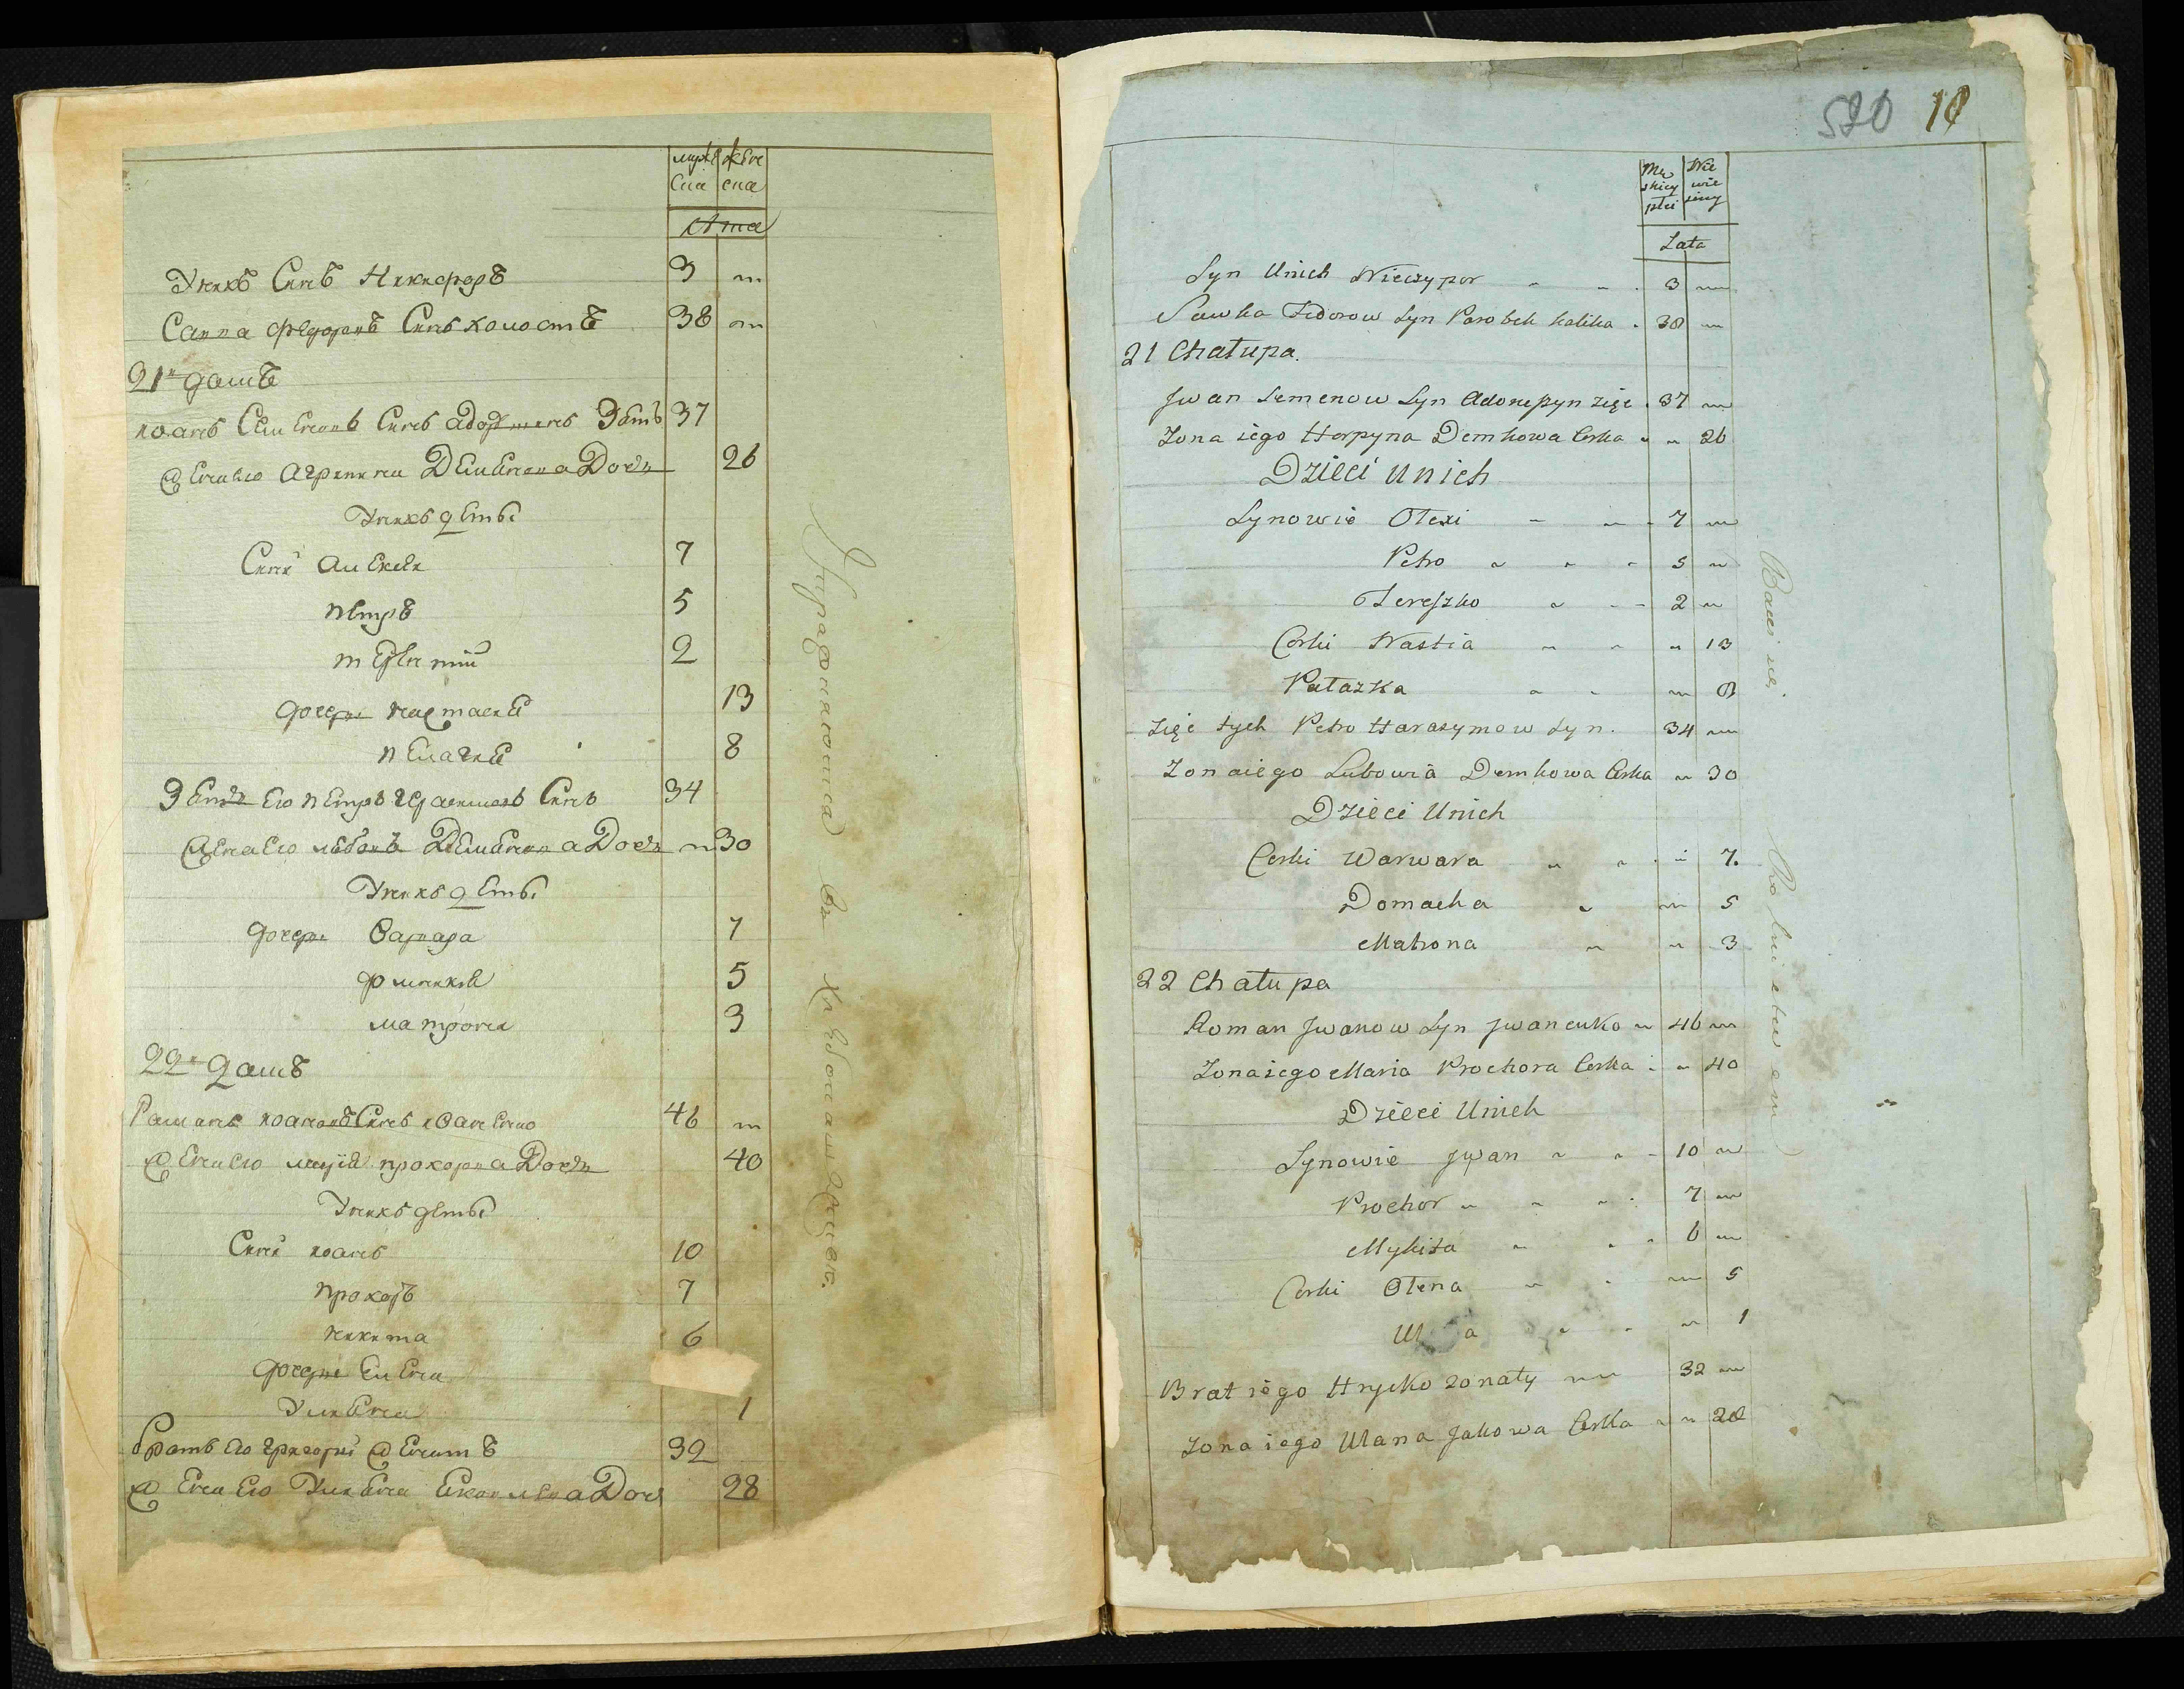 мужеска женска
Лета
У нихъ Сынъ Никифоръ 3
Савва Федоровъ Сынъ холостъ 38
21й домъ
Иванъ Семеновъ Сынъ Зять 37
Жена его Агрипина Деменова Дочь 26
У нихъ дети
Сыни Алексей 7
Петръ 5
Терентий 2
дочери Настасия 13
Пелагия 8
Зять его Петръ Герасимовъ Сынъ 34
Жена его Любовь Деменова Дочь 30
У нихъ дети
дочери Варвара 7
Домникия 5
Матрона 3
22й домъ
Романъ Ивановъ Сынъ Иваненко 46
Жена его Мария Прохорова Дочь 40
У нихъ дети
Сыни Иванъ 10
Прохоръ 7
Никита 6
дочери Елена
Улияна 1
братъ его Григорий Женатъ 32
Жена его Улияна Яковлева Дочь 28
Упражняются въ Хлебопашестве.
520 10
Męskiey płci Niewieściey
Lata
Syn Unich Nieczypor 3
Sawka Fedorow Syn Parobek kalika 38
21 Chałupa.
Jwan Semenow Syn zięc 37
Zona iego Horpyna Demkowa Corka 26
Dzieci Unich
Synowie Ołexi 7
Petro 5
Tereszko 2
Corki Nastia 13
Pałazka 8
zięc tych Petro Harasymow Syn. 34
Zona iego Lubowia Demkowa Corka 30
Dzieci Unich
Corki Warwara 7.
Domacha 5
Matrona 3
22 Chałupa
Roman Jwanow Syn Jwanenko 46
Zona iego Maria Prochora Corka 40
Dzieci Unich
Synowie Jwan 10
Prochor 7
Mykita 6
Corki Ołena 5
1
Brat iego Hrycko zonaty 32
Zona iego Ulana Jakowa Corka 28
Bawi się Rolnictwem